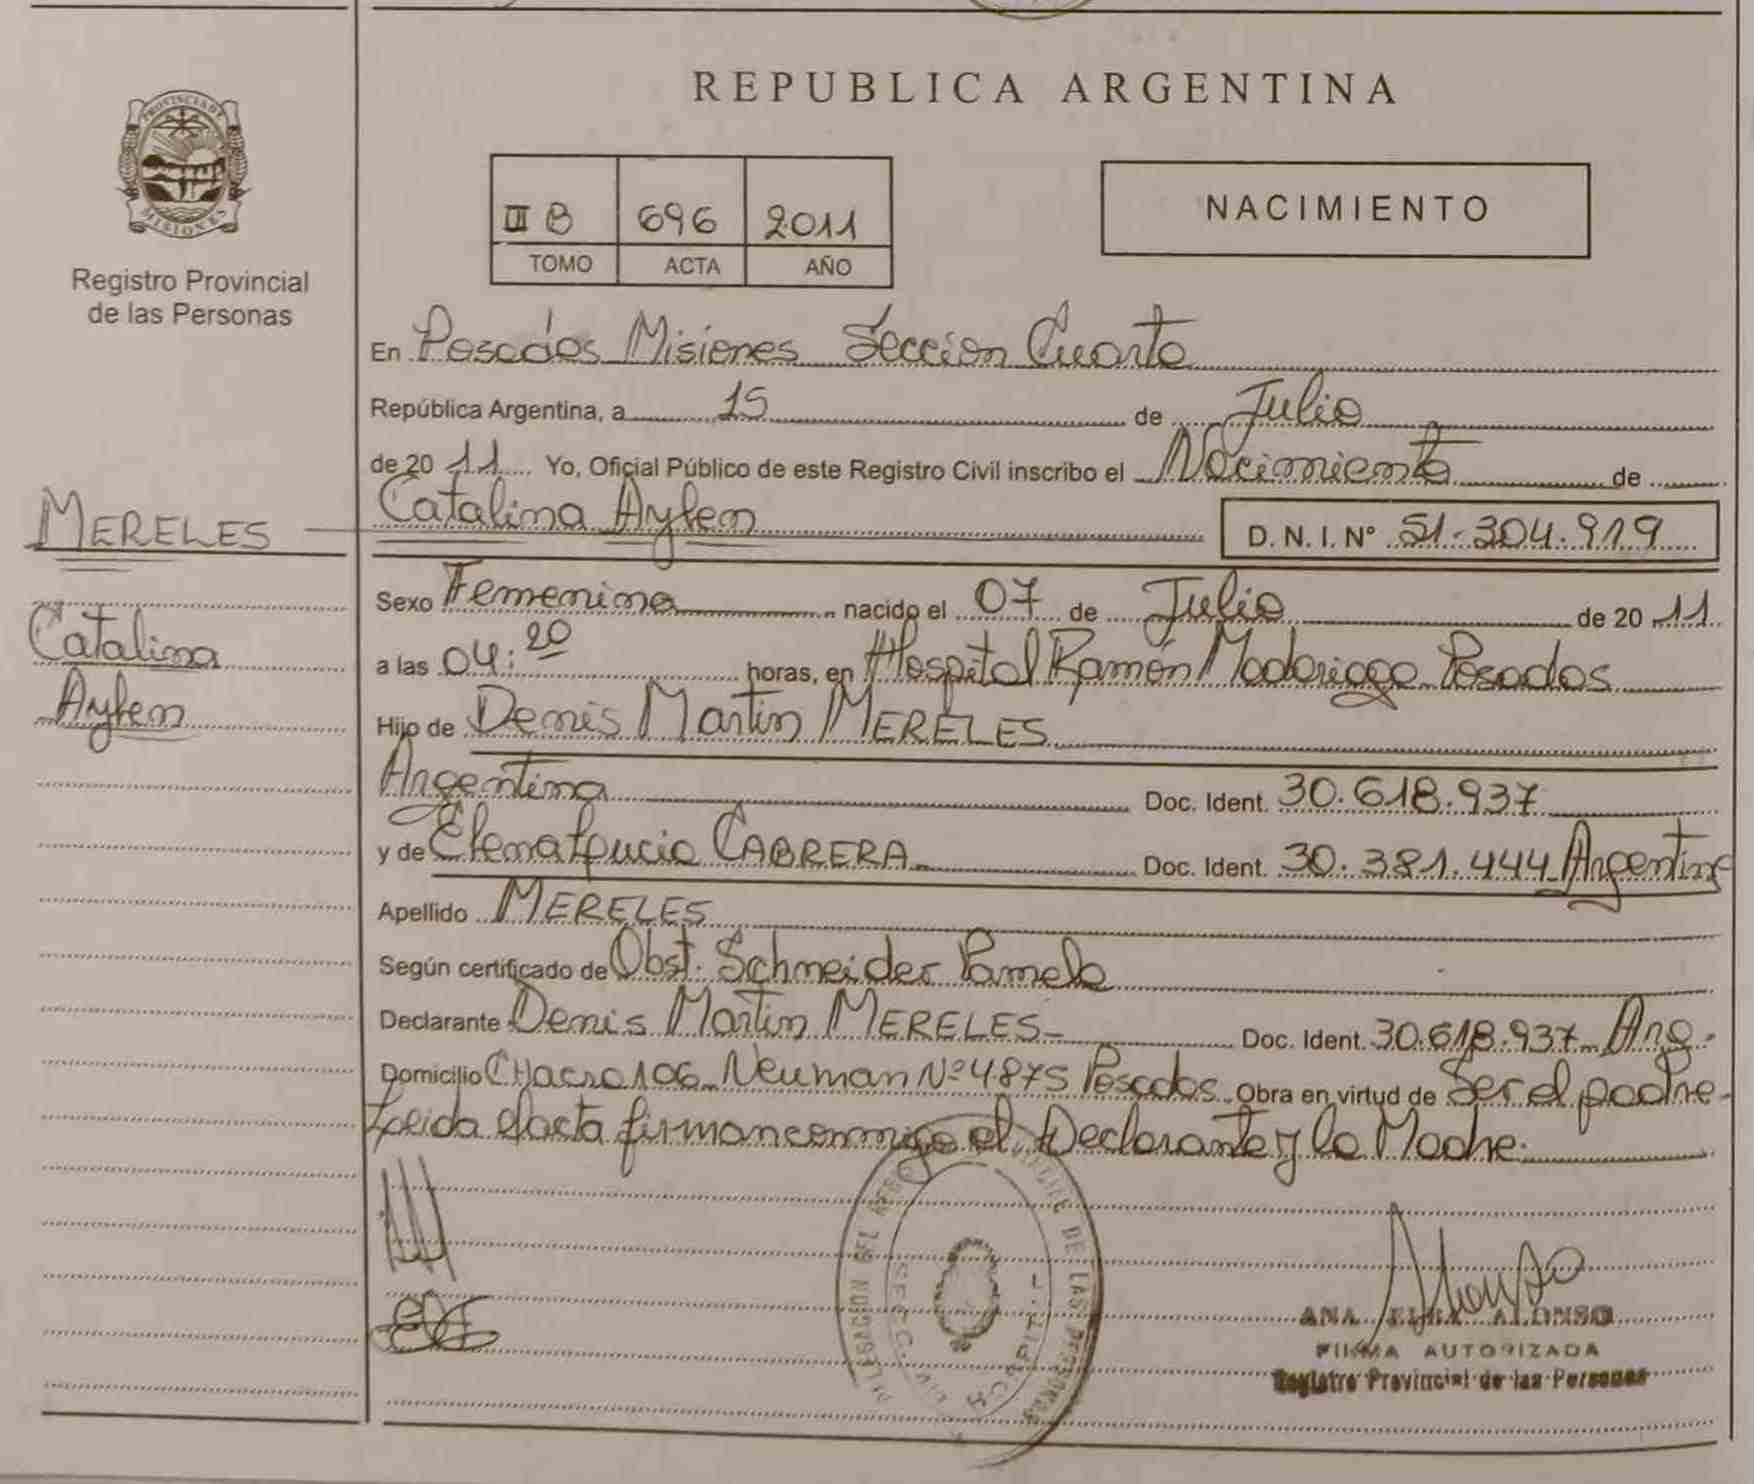 REPUBLICA ARGENTINA
PROVINCIA DE
MISIONES
Registro Provincial
de las Personas
III B 696 2011
TOMO ACTA AÑO
NACIMIENTO
En Posadas Misiones Sección Cuarta
República Argentina, a 15 de Julio
de 2011 Yo, Oficial Público de este Registro Civil inscribo el Nacimiento de
MERELES Catalina Aylen D. N. I. N° 51.304.919
Sexo Femenina nacido el 07 de Julio de 2011
Catalina
Aylen
a las 04:20 horas, en Hospital Ramón Madariaga Posadas
Hijo de Denis Martin MERELES
Argentina Doc. Ident. 30.618.937
y de Elena Lucia CABRERA Doc. Ident. 30.381.444 Argentina
Apellido MERELES
Según certificado de Obst. Schneider Pamela
Declarante Denis Martin MERELES Doc. Ident. 30.618.937 Arg.
Domicilio CHacra 106 Neuman Nº 4875 Posadas Obra en virtud de Ser el padre
Leida el acta firman conmigo el Declarante y la Madre.
ANA ALONSO
FIRMA AUTORIZADA
Registro Provincial de las Personas